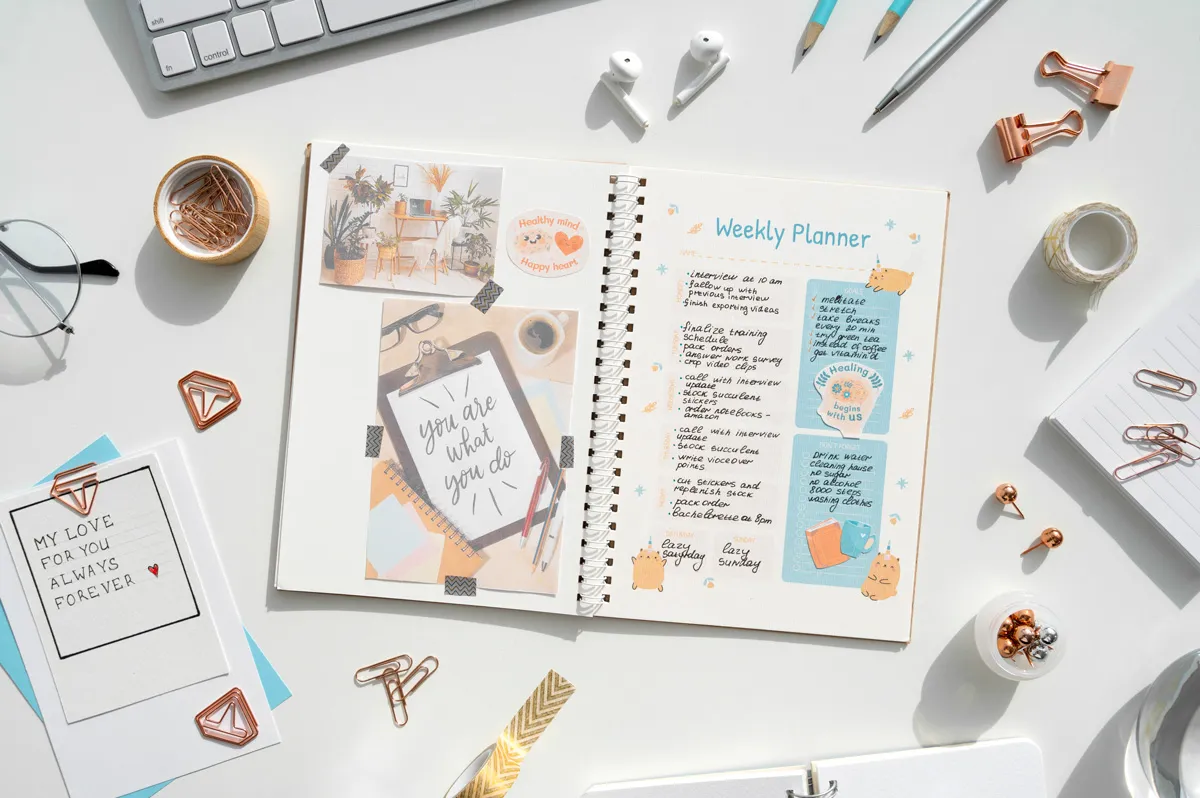 shift
fn
control
Healthy mind
Happy heart
you are
what
you do
Weekly Planner
• interview at 10 am
• follow up with
previous interview
• finish exporting videos
• finalize training
schedule
• pack orders
• answer work survey
• crop video clips
• call with interview
update
• stock succulent
stickers
• order notebooks -
amazon
• call with interview
update
• stock succulent
• write voiceover
points
• cut stickers and
replenish stock
• pack order
• Bachelorette at 8pm
lazy
saturday
lazy
sunday
meditate
stretch
take breaks
every 20 min
try green tea
instead of coffee
get vitamin d
Healing
begins
with us
Drink water
cleaning house
no sugar
no alcohol
8000 steps
washing clothes
MY LOVE
FOR YOU
ALWAYS
FOREVER